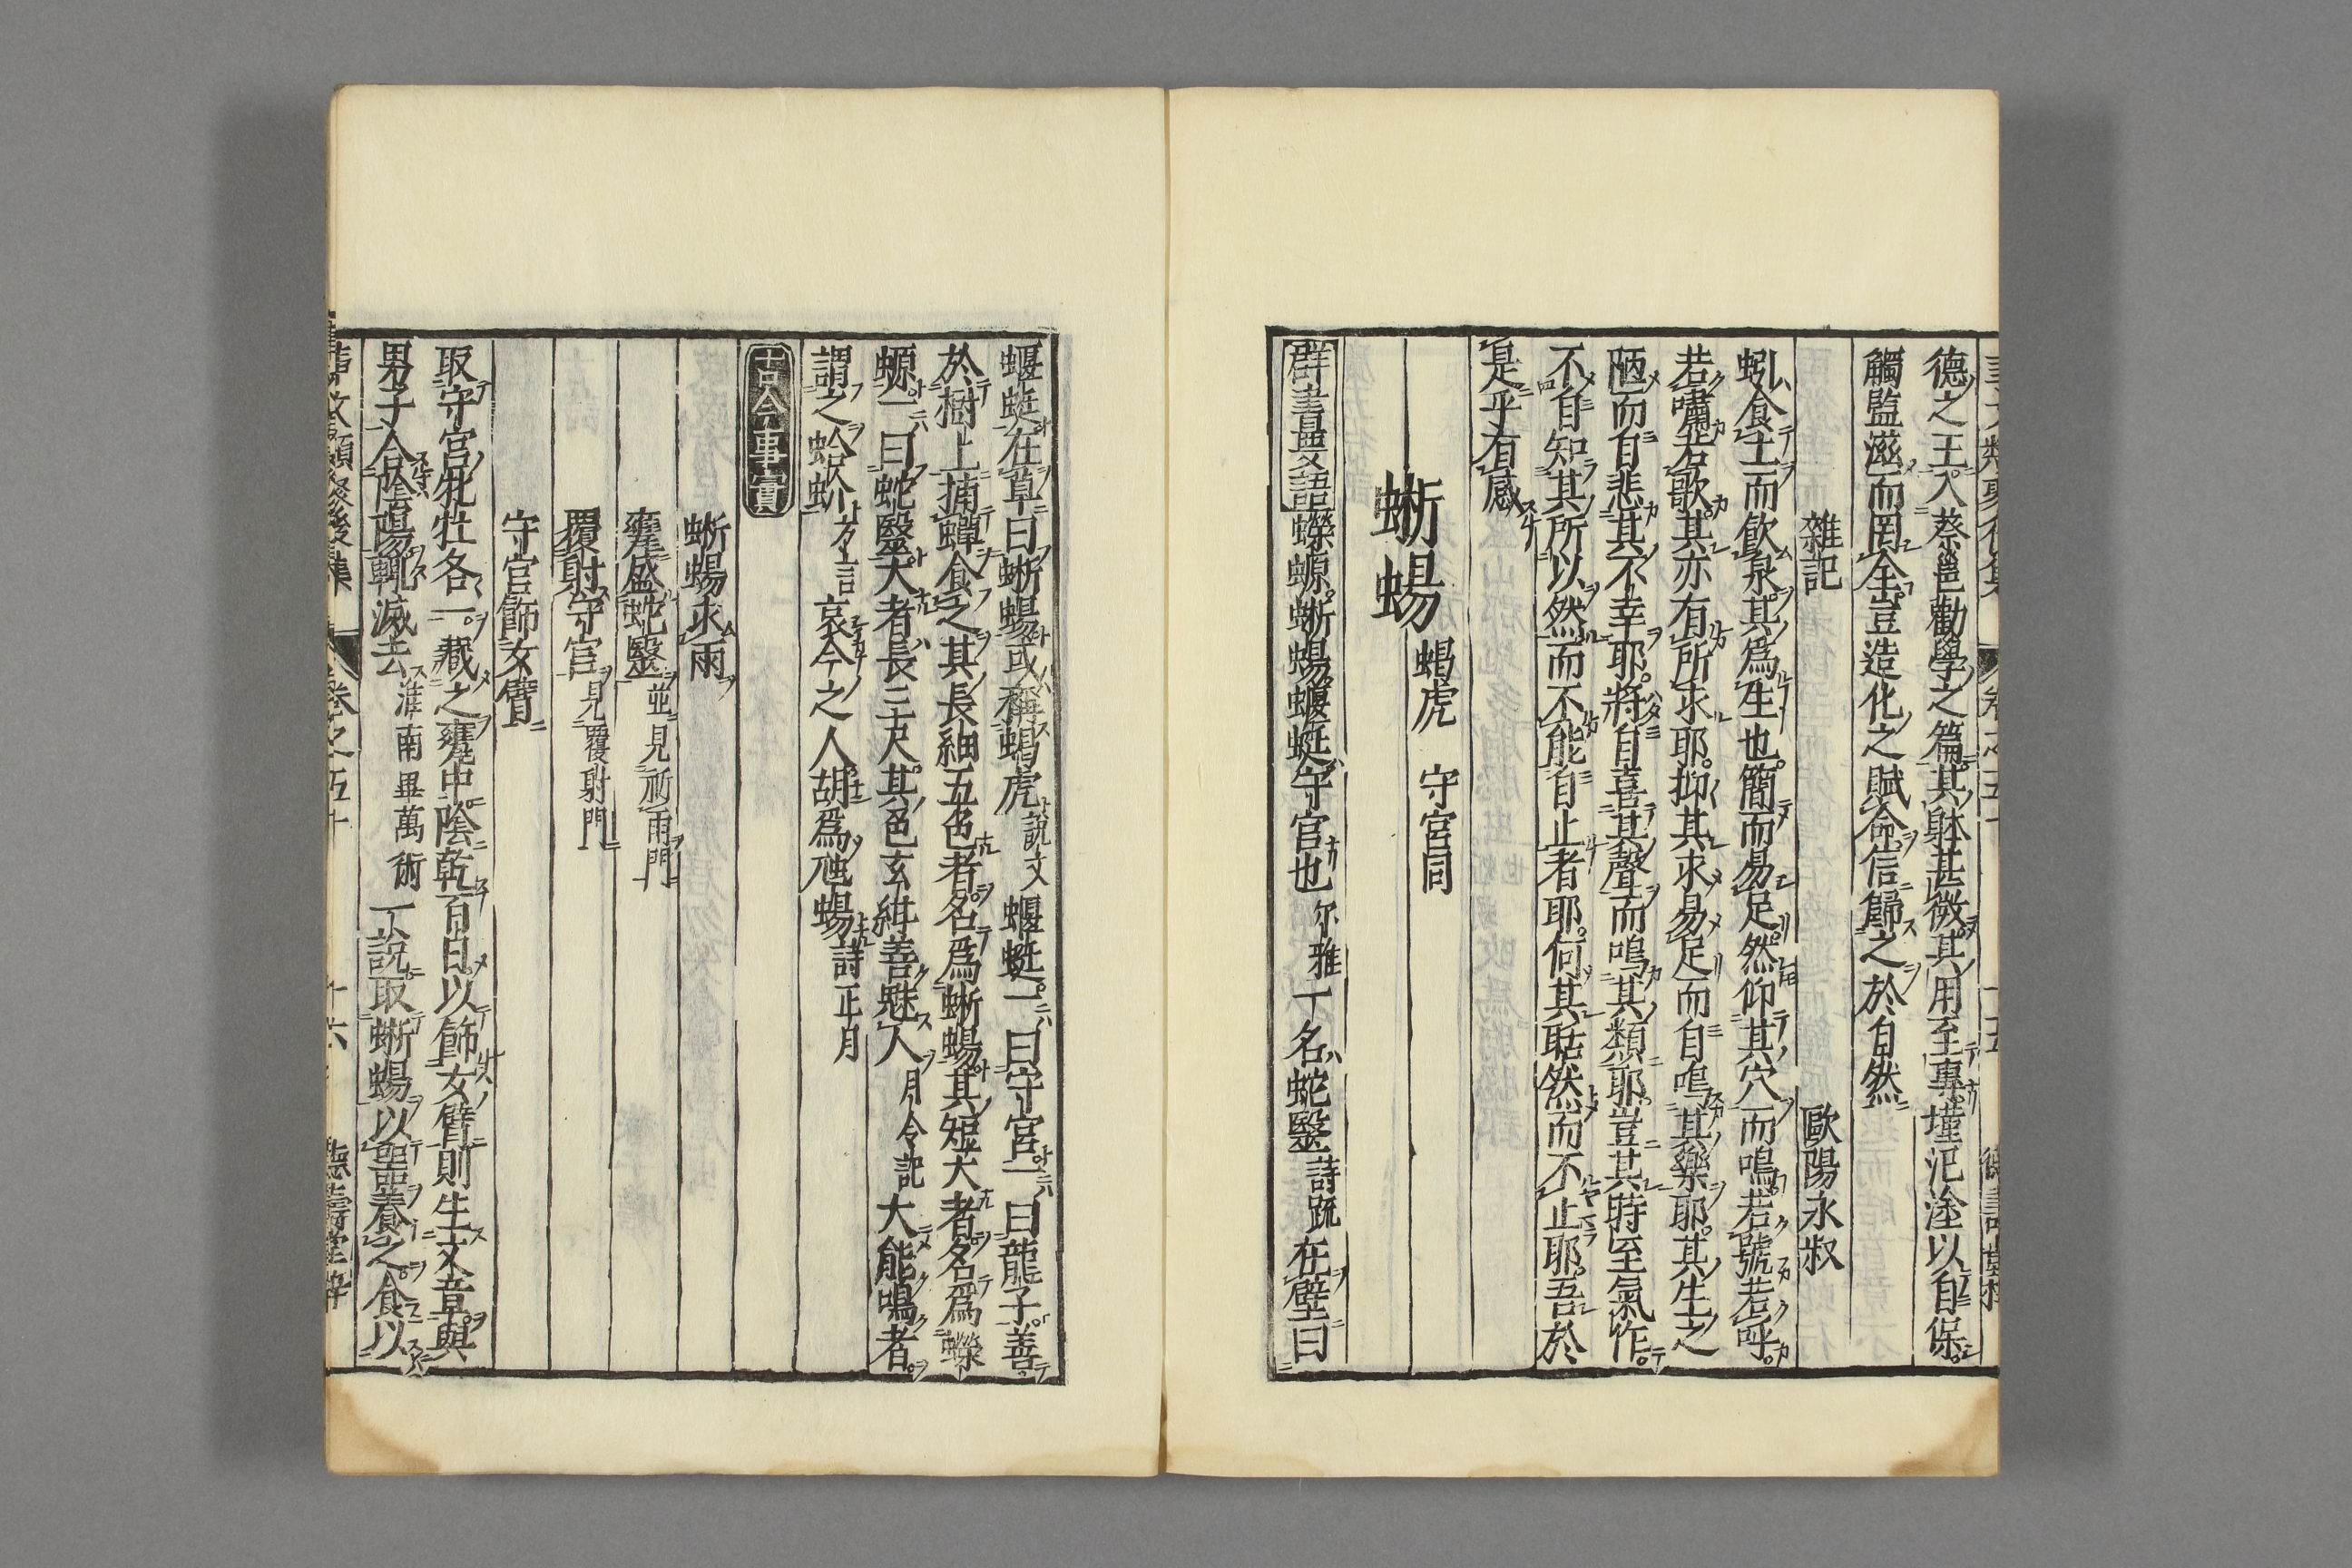 德之王入蔡邕勸學之篇其躰甚微其用至專墐泥塗以自保
觸監滋而罔全豈造化之賦命信歸之於自然
雜記　歐陽永叔
蚓食土而飲泉其爲生也簡而易足然仰其穴而鳴若號若呼
若嘯若歌其亦有所求耶抑其求易足而自鳴其樂耶其生之
陋而自悲其不幸耶將自喜其聲而鳴其類耶豈其時至氣作
不自知其所以然而不能自止者耶何其聒然而不止耶吾於
是乎有感
蜥蜴　蝎虎　守宮同
群書要語　蠑螈蜥蜴蝘蜓守宮也尔雅一名蛇醫詩䟽在壁曰
蝘蜓在草曰蜥蜴或稱蝎虎說文蝘蜓一曰守宮一曰龍子善
於樹上捕蟬食之其長細五色者名爲蜥蜴其短大者名爲蠑
螈一曰蛇醫大者長三尺其色玄紺善魅人月令記大能鳴者
謂之蛤蚧方言哀今之人胡爲虺蜴詩正月
古今事實
蜥蜴求雨
甕盛蛇醫並見祈雨門
覆射守宮見覆射門
守宮飾女臂
取守宮牝牡各一藏之甕中陰乾百日以飾女臂則生文章與
男子合陰陽輒滅去淮南畢萬術一說取蜥蜴以器養之食以
事文類聚後集　卷之五十　十六　德壽堂梓